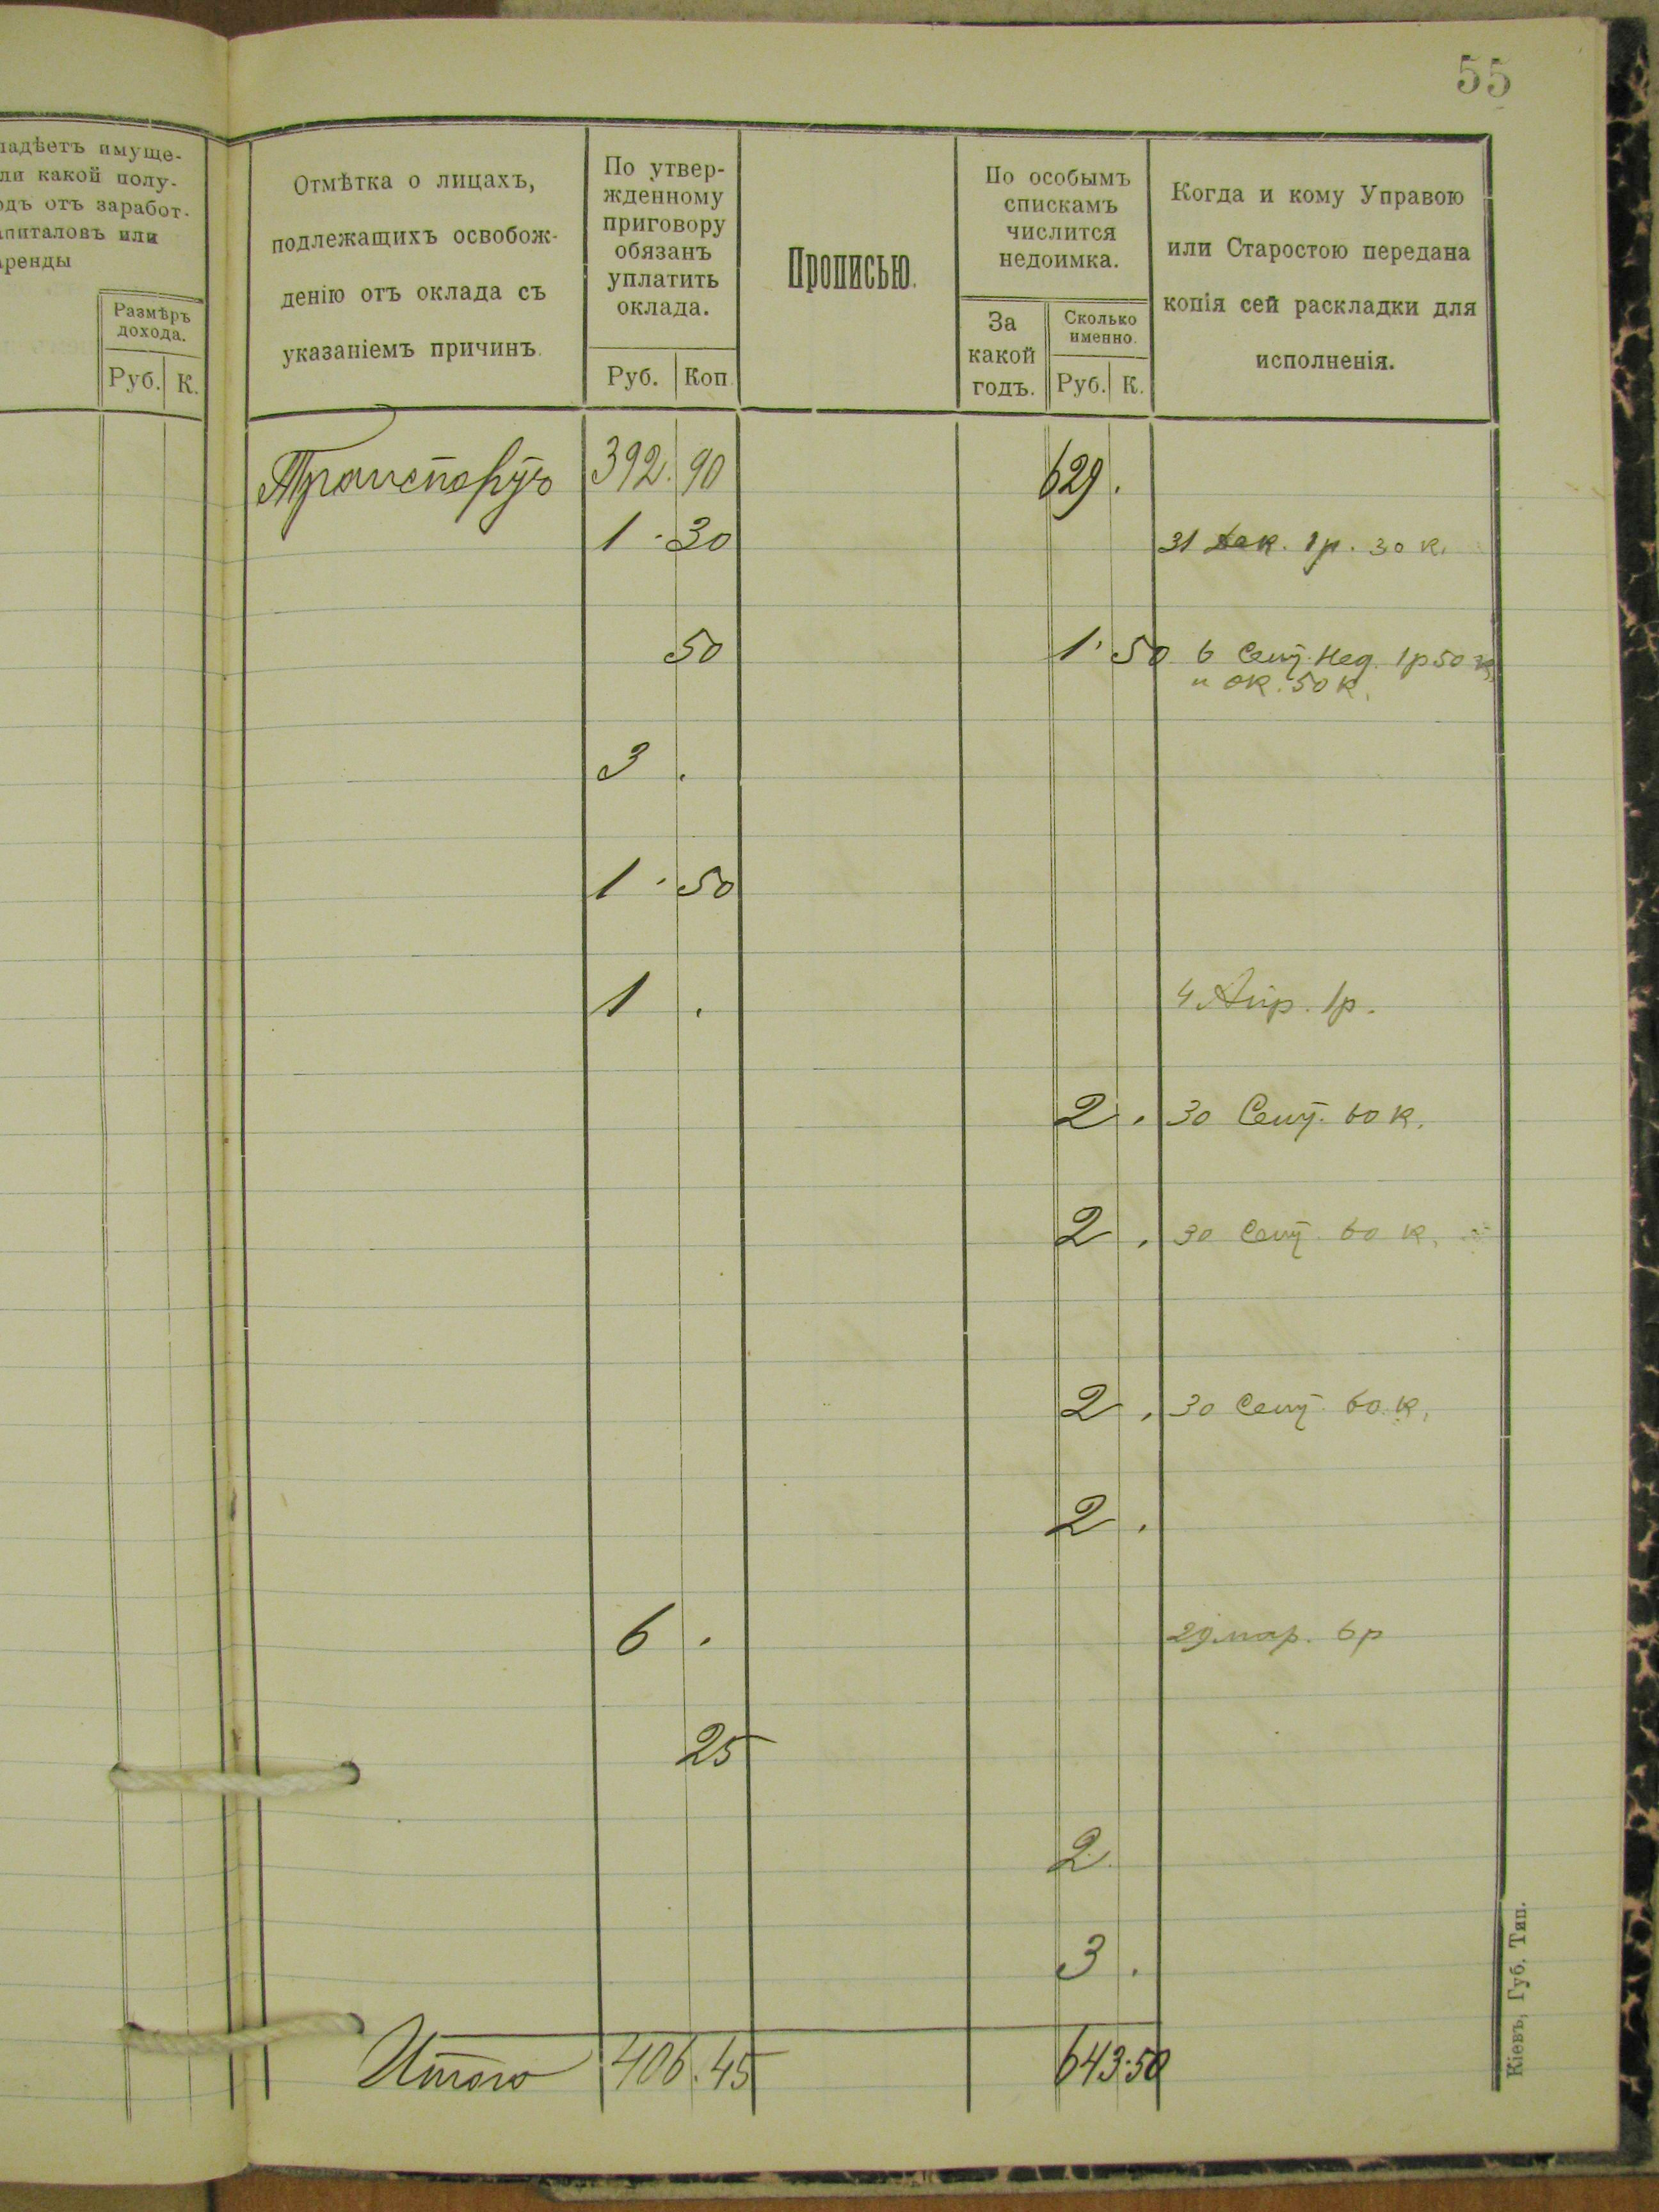 55
ладѣетъ имуще-
ли какой полу-
одъ отъ заработ-
апиталовъ или
аренды
Размѣръ
дохода.
Руб. К.
Отмѣтка о лицахъ,
подлежащихъ освобож-
денію отъ оклада съ
указаніемъ причинъ.
По утвер-
жденному
приговору
обязанъ
уплатить
оклада.
Руб. Коп.
Прописью.
По особымъ
спискамъ
числится
недоимка.
За
какой
годъ.
Сколько
именно.
Руб. К.
Когда и кому Управою
или Старостою передана
копія сей раскладки для
исполненія.
Транспортъ 392. 90 629.
1 · 30 31 Дек. 1р. 30 к.
50 1 · 50 6 Сент. Нед. 1р 50 к
и ок. 50 к.
3 .
1 · 50
1 . 4 Апр. 1р.
2 . 30 Сент. 60 к.
2 . 30 Сент. 60 к.
2 . 30 Сент. 60 к.
2 .
6 . 29 мар. 6 р
25
2
3 .
Итого 406. 45 643·50
Кіевъ, Губ. Тип.